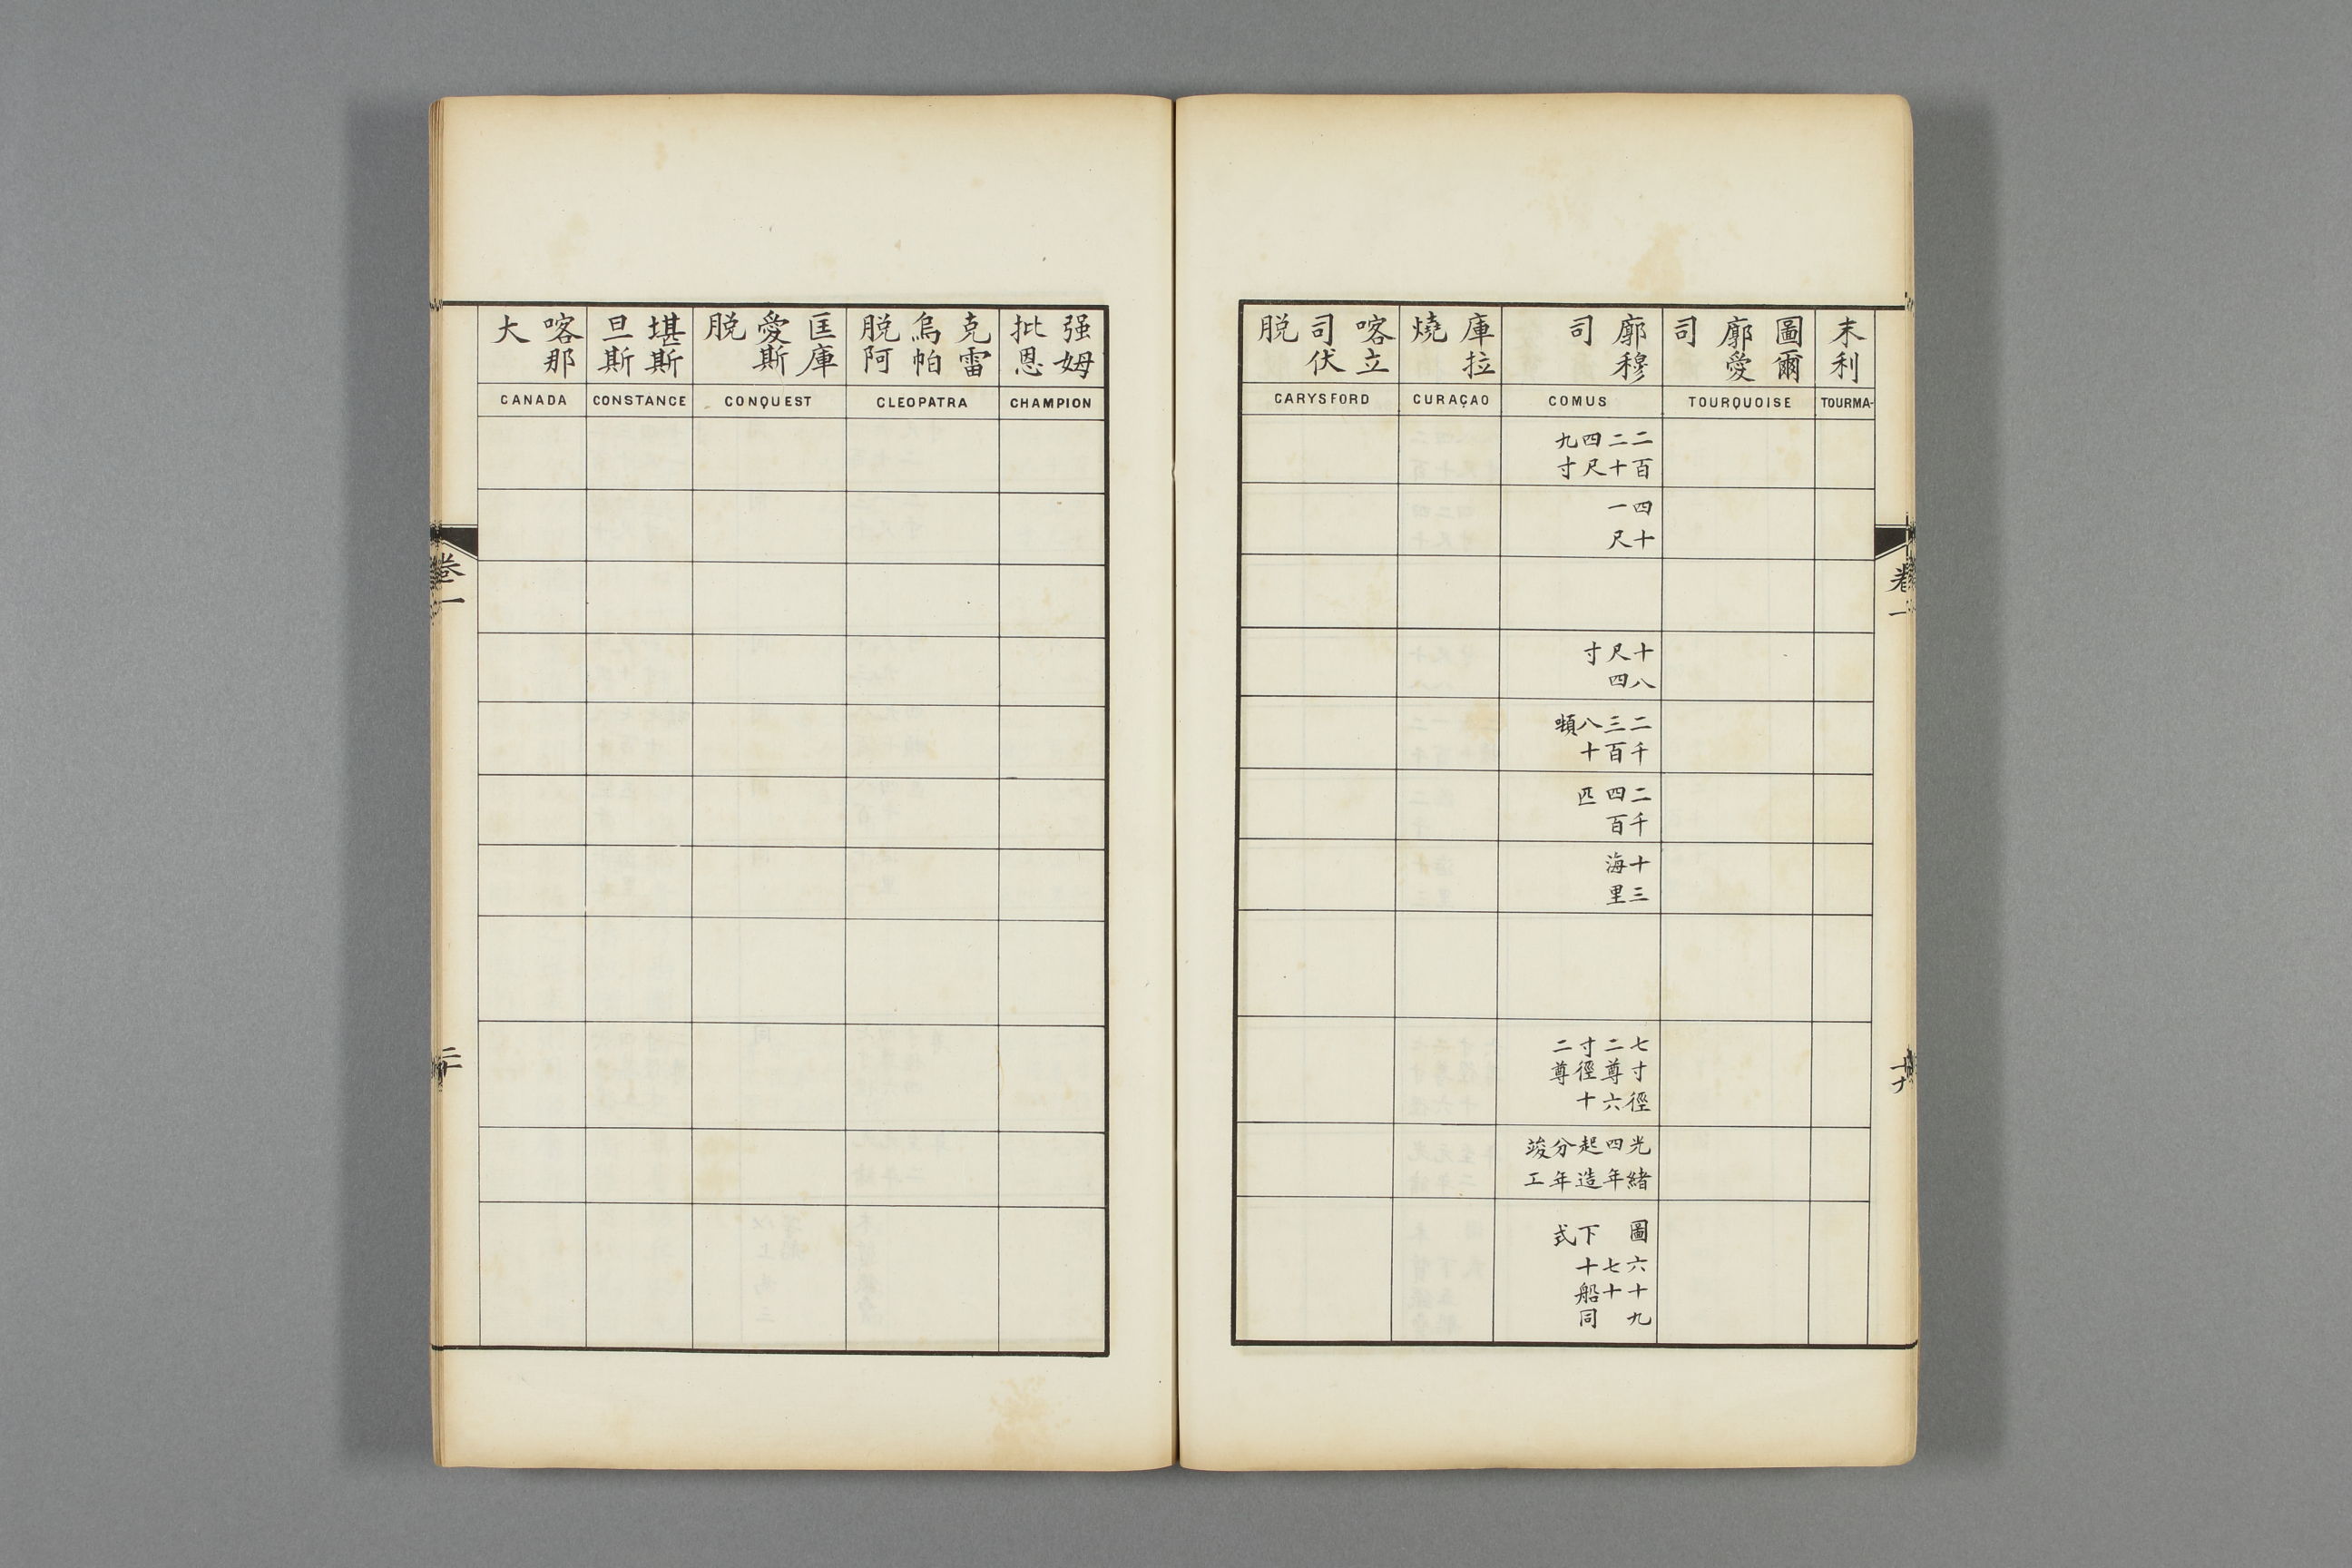 末利
TOURMA-
圖爾
廓愛
司
TOURQUOISE
廓穆
司
COMUS
二百
二十
四尺
九寸
四十
一尺
十八
尺四
寸
二千
三百
八十
噸
二千
四百
匹
十三
海里
七寸徑
二尊六
寸徑十
二尊
光緒
四年
起造
分年
竣工
圖六十九
七十
下十船同
式
庫拉
燒
CURAÇAO
喀立
司伏
脱
CARYSFORD
卷一
强姆
批恩
CHAMPION
克雷
烏帕
脱阿
CLEOPATRA
匡庫
愛斯
脱
CONQUEST
堪斯
旦斯
CONSTANCE
喀那
大
CANADA
卷一